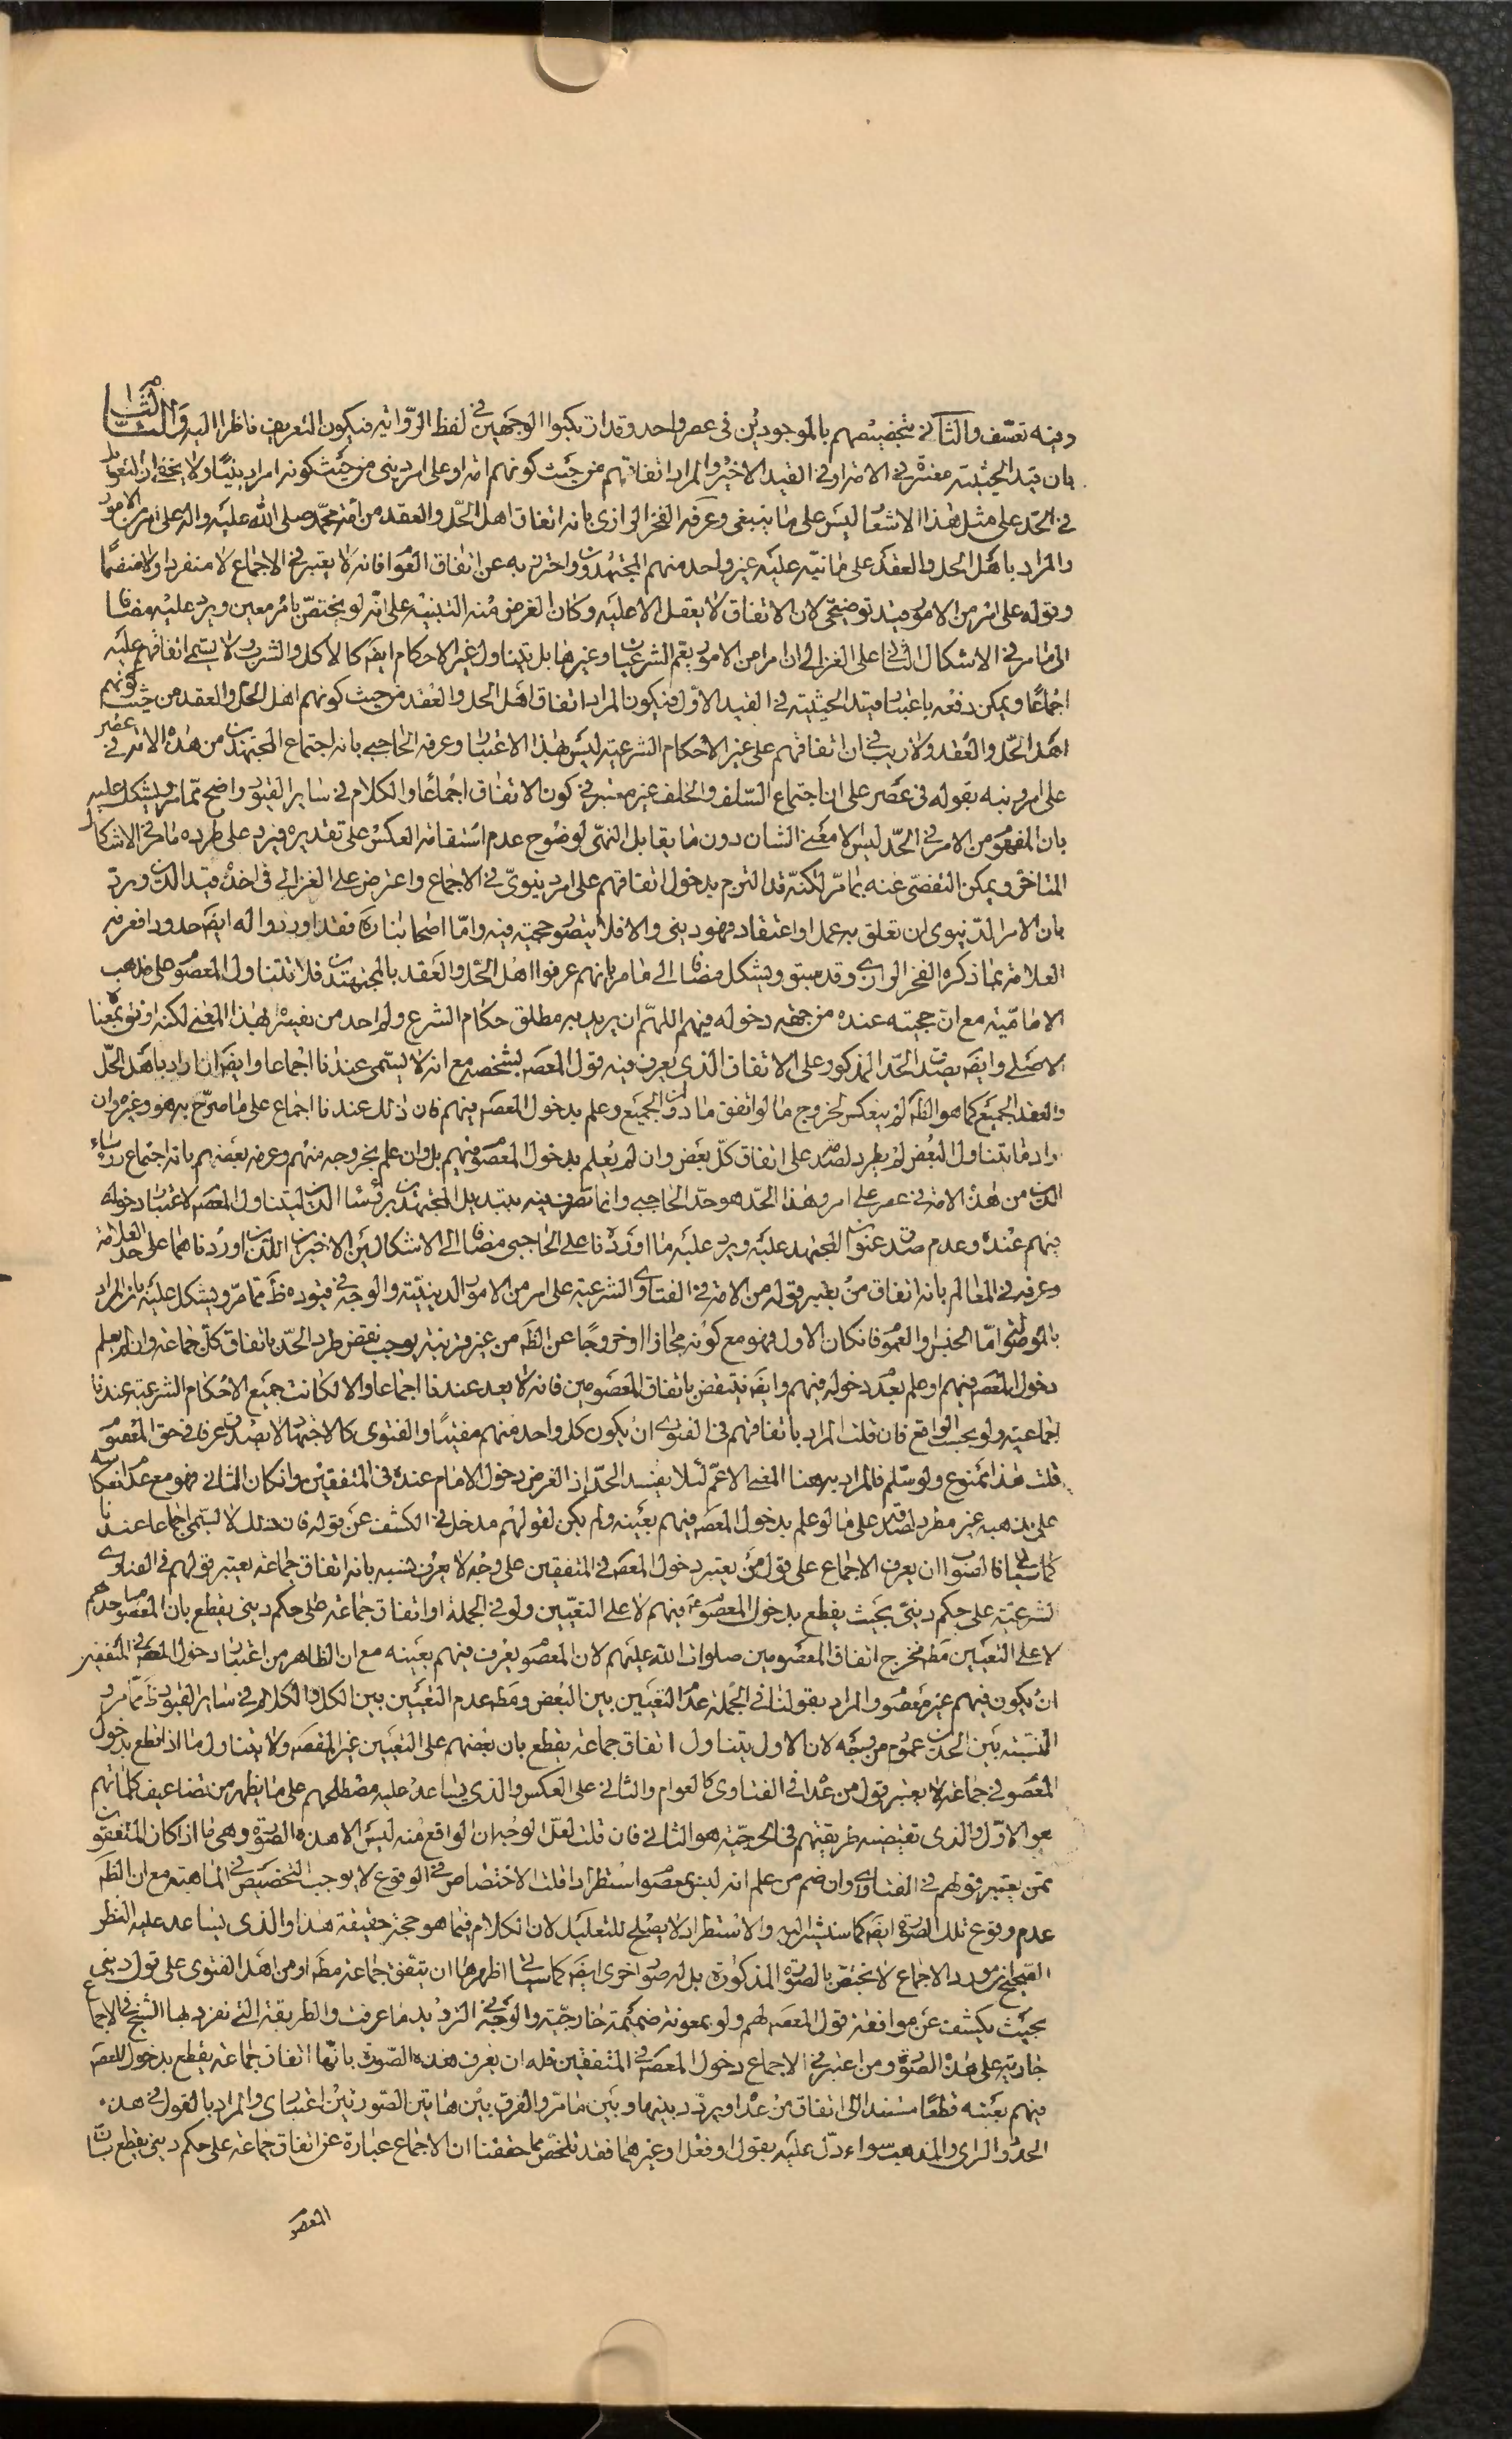 وفيه تعسّف والثاني بتخصيصهم بالموجودين في عصر واحد وقد ارتكبوا الوجهين في لفظ الرواية فيكون التعريف ناظرا اليه والثالث
بان قيد الحيثية معتبرة في الامة او في القيد الاخير والمراد اتفاقهم من حيث كونهم امة او على امر ديني من حيث كونه امرا دينيّا ولا يخفى ان التعويل
في الحدّ على مثل هذا الاشعار ليس على ما ينبغي وعرفه الفخر الرازي بانه اتفاق اهل الحلّ والعقد من امّة محمّد صلى الله عليه واله على امر من الامور
والمراد باهل الحل والعقد على ما نبّه عليه غير واحد منهم المجتهدون واحترز به عن اتفاق العوام فانه لا يعتبر في الاجماع لا منفردا ولا منضمّا
وقوله على امر من الامور قيد توضيحي لان الاتفاق لا يعقل الا عليه وكان الغرض منه التنبيه على انّه لا يختصّ بامر معين ويرد عليه مضافا
الى ما مر في الاشكال الثاني على الغزالي ان امرا من الامور يعم الشرعيات وغيرها بل يتناول غير الاحكام ايضَ كالاكل والشرب ولا يسمى اتفاقهم عليه
اجماعا ويمكن دفعه باعتبار قيد الحيثية في القيد الاوّل فيكون المراد اتفاق اهل الحل والعقد من حيث كونهم اهل الحلّ والعقد من حيث كونهم
اهل الحلّ والعقد ولا ريب في ان اتفاقهم على غير الاحكام الشرعية ليس بهذا الاعتبار وعرفه الحاجبي بانه اجتماع المجتهدين من هذه الامة في عصر
على امر ونبه بقوله في عصر على ان اجتماع السّلف والخلف غير معتبر في كون الاتفاق اجماعا والكلام في ساير القيود واضح ممّا مر ويشكل عليه
بان المفهوم من الامر في الحدّ ليس الا معنى الشان دون ما يقابل النهي لوضوح عدم استقامة العكس على تقديره فيرد على طرده ما مر في الاشكال
المتاخر ويمكن التفصّي عنه بما مرّ لكنّه قد التزم بدخول اتفاقهم على امر دنيويّ في الاجماع واعترض على الغزالي في اخذه قيد الدين وردّ
بان الامر الدّنيوي ان تعلق به عمل او اعتقاد فهو ديني والا فلا يتصور حجيته فيه وامّا اصحابنا ره فقد اوردوا له ايضَ حدودا فعرفه
العلامة بما ذكره الفخر الرازي وقد سبق ويشكل مضافا الى ما مر بانهم عرفوا اهل الحلّ والعقد بالمجتهدين فلا يتناول المعصوم على مذهب
الامامّية مع ان حجيته عنده من جهة دخوله فيهم اللهمّ ان يريد به مطلق حكام الشرع ولم اجد من يفسّره بهذا المعنى لكنه اوفق بمعناه
الاصلي وايضَ يصدق الحدّ المذكور على الاتفاق الذي يعرف فيه قول المعصَ بشخصه مع انه لا يسمى عندنا اجماعا وايضَ ان اراد باهل الحلّ
والعقد الجميع كما هو الظَ لم ينعكس لخروج ما لو اتفق ما دون الجميع وعلم بدخول المعصَ فيهم فان ذلك عندنا اجماع على ما صرّح به هو وغيره وان
اراد ما يتناول البعض لم يطرد لصدقه على اتفاق كلّ بعض وان لم يعلم بدخول المعصوم فيهم بل وان علم بخروجه منهم وعرفه بعضهم بانه اجتماع رؤساء
الدين من هذه الامة في عصر على امر وهذا الحدّ هو حدّ الحاجبي وانما تصرف فيه بتبديل المجتهدين برؤساء الدين ليتناول المعصَ لاعتبار دخوله
فيهم عنده وعدم صدق عنوان المجتهد عليه ويرد عليه ما اوردناه على الحاجبي مضافا الى الاشكالين الاخيرين اللذين اوردناهما على حد العلامة
وعرفه في المعالم بانه اتفاق من يعتبر قوله من الامة في الفتاوى الشرعية على امر من الامور الدينيّة والوجه في قيوده ظَ ممّا مرّ ويشكل عليه بان المراد
بالموصول امّا الجنس او العموم فان كان الاول فهو مع كونه مجازا او خروجا عن الظَ من غير قرينة يوجب نقض طرد الحدّ باتفاق كلّ جماعة وان لم يعلم
دخول المعصَ فيهم او علم بعدم دخوله فيهم وايضَ ينتقض باتفاق المعصومين فانه لا يعد عندنا اجماعا والا لكانت جميع الاحكام الشرعية عندنا
اجماعية ولو بحسب الواقع فان قلت المراد باتفاقهم في الفتوى ان يكون كل واحد منهم مفتيا والفتوى كالاجتهاد لا تصدق عرفا في حق المعصوم
قلت هذا ممنوع ولو سلّم فالمراد به هنا المعنى الاعمّ لئلا يفسد الحدّ اذ الغرض دخول الامام عنده في المتفقين وان كان الثاني فهو مع عدم انعكاسه
على مذهبه غير مطرد لصدقه على ما لو علم بدخول المعصَ فيهم بعينه ولم يكن لقولهم مدخل في الكشف عن قوله فان ذلك لا يسمّى اجماعا عندنا
كما سياتي فالصواب ان يعرف الاجماع على قول من يعتبر دخول المعصَ في المتفقين على وجه لا يعرف نسبه بانه اتفاق جماعة يعتبر قولهم في الفتاوى
الشرعيّة على حكم دينيّ بحيث يقطع بدخول المعصوم فيهم لا على التعيين ولو في الجملة او اتفاق جماعة على حكم ديني يقطع بان المعصوم احدهم
لا على التعيين مطَ فخرج اتفاق المعصومين صلوات الله عليهم لان المعصوم يعرف فيهم بعينه مع ان الظاهر من اعتبار دخول المعصَ في المتفقين
ان يكون فيهم غير معصوم والمراد بقولنا في الجملة عدم التعيين بين البعض ومطَ عدم التعيين بين الكل والكلام في ساير القيود ظَ ممّا مر و
النسبة بين الحدين عموم من وجه لان الاول يتناول اتفاق جماعة يقطع بان بعضهم على التعيين غير المعصَ ولا يتناول ما اذا قطع بدخول
المعصوم في جماعة لا يعتبر قول من عدا في الفتاوى كالعوام والثاني على العكس والذي يساعد عليه مصطلحهم على ما يظهر من تضاعيف كلماتهم
هو الاوّل والذي تقتضيه طريقتهم في الحجيّة هو الثاني فان قلت لعلّ الوجه ان الواقع منه ليس الا هذه الصورة وهي ما اذا كان المتفقون
ممن يعتبر قولهم في الفتاوى وان ضم من علم انه ليس بمعصوم استطرادا قلت الاختصاص في الوقوع لا يوجب التخصيص في الماهية مع ان الظَ
عدم وقوع تلك الصورة ايضَ كما سنشير اليه والاستطراد لا يصلح للتعليل لان الكلام فيما هو حجة حقيقة هذا والذي يساعد عليه النظر
الصحيح ان مورد الاجماع لا يختص بالصورة المذكورة بل له صور اخرى ايضَ كما سياتي اظهرها ان يتفق جماعة مطَ او من اهل الفتوى على قول ديني
بحيث يكشف عن موافقة قول المعصَ لهم ولو بمعونة ضميمة خارجيّة والوجه في الترديد ما عرفت والطريقة التي تفرد بها الشيخ في الاجماع
جارية على هذه الصورة ومن اعتبر في الاجماع دخول المعصَ في المتفقين فله ان يعرف هذه الصورة بانّها اتفاق جماعة يقطع بدخول المعصَ
فيهم بعينه قطعا مستندا الى اتفاق من عدا ويردّد بينها وبين ما مرّ والفرق بين هاتين الصورتين اعتباري والمراد بالقول في هذه
الحدود الراي والمذهب سواء دلّ عليه بقول او فعل او غيرهما فقد تلخّص مما حققنا ان الاجماع عبارة عن اتفاق جماعة على حكم ديني يقطع بان
المعصوم